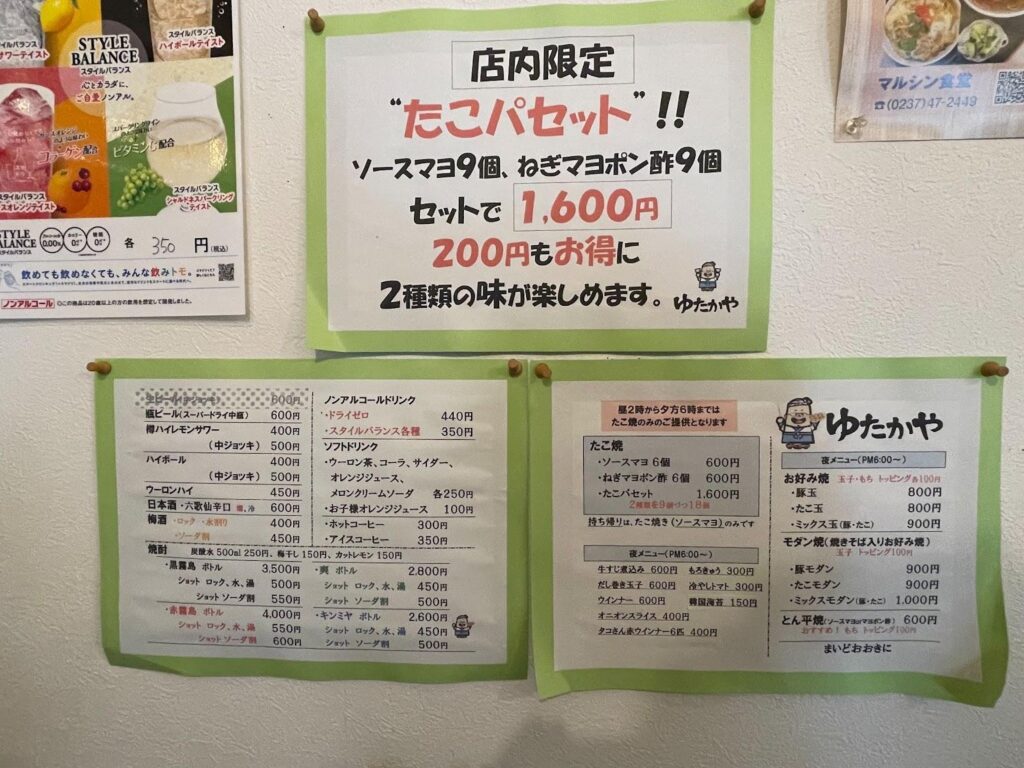 STYLE
BALANCE
スタイルバランス
サワーテイスト
スタイルバランス
ハイボールテイスト
心とカラダに、
ご自愛ノンアル。
コラーゲン配合
スパークリングワイン
ビタミンC配合
スタイルバランス
スオレンジテイスト
スタイルバランス
シャルドネスパークリング
テイスト
STYLE
BALANCE
スタイルバランス
0.00%
各 350 円(税込)
飲めても飲めなくても、みんな飲みトモ。
ノンアルコール
この商品は20歳以上の方の飲用を想定して開発しました。
店内限定
“たこパセット”!!
ソースマヨ9個、ねぎマヨポン酢9個
セットで 1,600円
200円もお得に
2種類の味が楽しめます。
ゆたかや
マルシン食堂
☎(0237)47-2449
生ビール(中ジョッキ) 600円
瓶ビール(スーパードライ中瓶) 600円
樽ハイレモンサワー 400円
(中ジョッキ) 500円
ハイボール 400円
(中ジョッキ) 500円
ウーロンハイ 450円
日本酒・六歌仙辛口 燗、冷 600円
梅酒 ・ロック ・水割り 400円
・ソーダ割 450円
ノンアルコールドリンク
・ドライゼロ 440円
・スタイルバランス各種 350円
ソフトドリンク
・ウーロン茶、コーラ、サイダー、
オレンジジュース、
メロンクリームソーダ 各250円
・お子様オレンジジュース 100円
・ホットコーヒー 300円
・アイスコーヒー 350円
焼酎 炭酸水500ml 250円、梅干し150円、カットレモン150円
・黒霧島 ボトル 3,500円
ショット ロック、水、湯 500円
ショット ソーダ割 550円
・赤霧島 ボトル 4,000円
ショット ロック、水、湯 550円
ショット ソーダ割 600円
・爽 ボトル 2,800円
ショット ロック、水、湯 450円
ショット ソーダ割 500円
・キンミヤ ボトル 2,600円
ショット ロック、水、湯 450円
ショット ソーダ割 500円
昼2時から夕方6時までは
たこ焼のみのご提供となります
たこ焼
・ソースマヨ 6個 600円
・ねぎマヨポン酢 6個 600円
・たこパセット 1,600円
2種類を9個づつ18個
持ち帰りは、たこ焼き(ソースマヨ)のみです
夜メニュー(PM6:00~)
牛すじ煮込み 600円 もろきゅう 300円
だし巻き玉子 600円 冷やしトマト 300円
ウインナー 600円 韓国海苔 150円
オニオンスライス 400円
タコさん赤ウインナー6匹 400円
ゆたかや
夜メニュー(PM6:00~)
お好み焼 玉子・もち トッピング各100円
・豚玉 800円
・たこ玉 800円
・ミックス玉(豚・たこ) 900円
モダン焼(焼きそば入りお好み焼)
玉子 トッピング100円
・豚モダン 900円
・たこモダン 900円
・ミックスモダン(豚・たこ) 1,000円
とん平焼(ソースマヨorマヨポン酢) 600円
おすすめ! もち トッピング100円
まいどおおきに